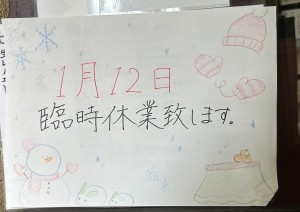 1月12日
臨時休業致します。